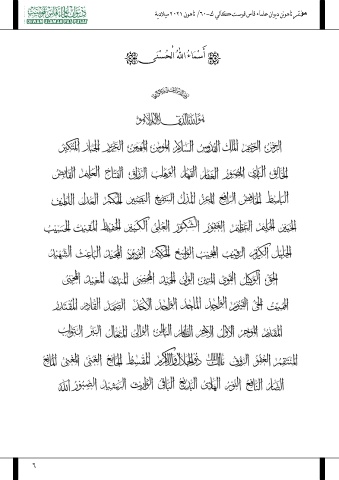 مؤتمر تاهونن ديوان علماء فاس فوست كالي ك-٦٠/ تاهون ٢٠٢١ ميلادية
أَسْمَاءُ اللهُ الْحُسْنَى
بسم الله الرحمن الرحيم
هو الله الذي لا إله إلا هو
الرحمن الرحيم الملك القدوس السلام المؤمن المهيمن العزيز الجبار المتكبر
الخالق البارئ المصور الغفار القهار الوهاب الرزاق الفتاح العليم القابض
الباسط الخافض الرافع المعز المذل السميع البصير الحكم العدل اللطيف
الخبير الحليم العظيم الغفور الشكور العلي الكبير الحفيظ المقيت الحسيب
الجليل الكريم الرقيب المجيب الواسع الحكيم الودود المجيد الباعث الشهيد
الحق الوكيل القوي المتين الولي الحميد المحصي المبدئ المعيد المحيي
المميت الحي القيوم الواجد الماجد الواحد الأحد الصمد القادر المقتدر
المقدم المؤخر الأول الآخر الظاهر الباطن الوالي المتعال البر التواب
المنتقم العفو الرؤوف مالك الملك ذو الجلال والإكرام المقسط الجامع الغني المغني المانع
الضار النافع النور الهادي البديع الباقي الوارث الرشيد الصبور الله
٦